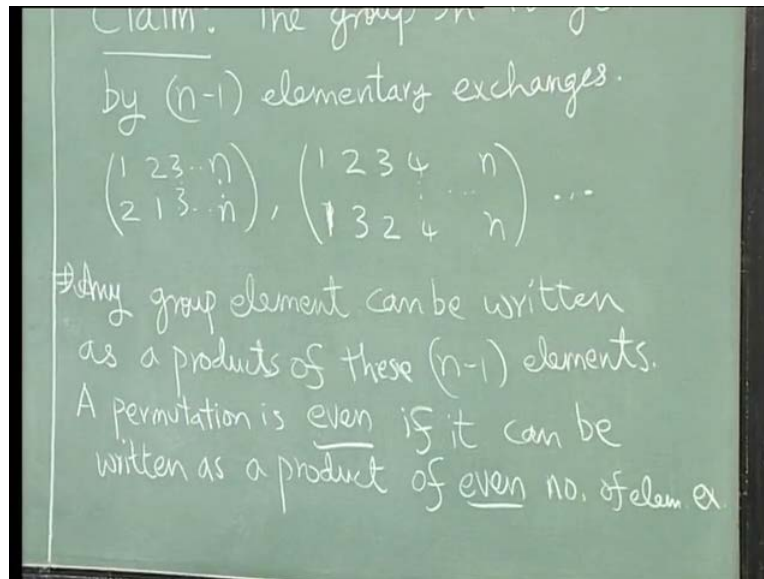 Claim: The group
by (n-1) elementary exchanges.
(1 2 3 ... n
2 1 3 ... n), (1 2 3 4 ... n
1 3 2 4 n) ...
⇒ Any group element can be written
as a products of these (n-1) elements.
A permutation is even if it can be
written as a product of even no. of elem. ex